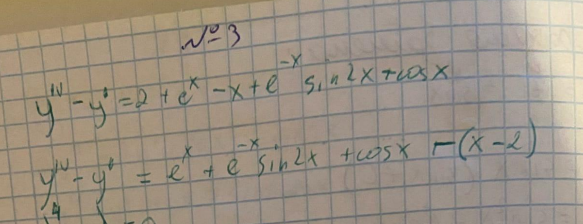 №3
y^IV - y' = 2 + e^x - x + e^-x sin2x + cosx
y^IV - y' = e^x + e^-x sin2x + cosx - (x-2)